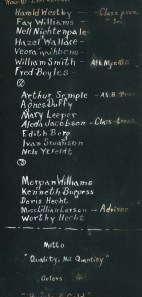 Harold Westby — Class pres.
Fay Williams — Sec.
Nell Nichtenpale
Hazel Wallace
Veona Wishbeme
William Smith — Ath. Mgr.
Fred Boyles
Arthur Semple — A.B. Pres.
Agnes Duffy
Mary Leeper
Aleda Jacobson — Class-Treas.
Edith Berg
Ivan Swanson
Nels Yefeldt
Morgan Williams
Kenneth Burgess
Doris Hecht
Miss Lillian Larson — Advisor
Worthy Hecht
Motto
"Quality, Not Quantity"
Colors